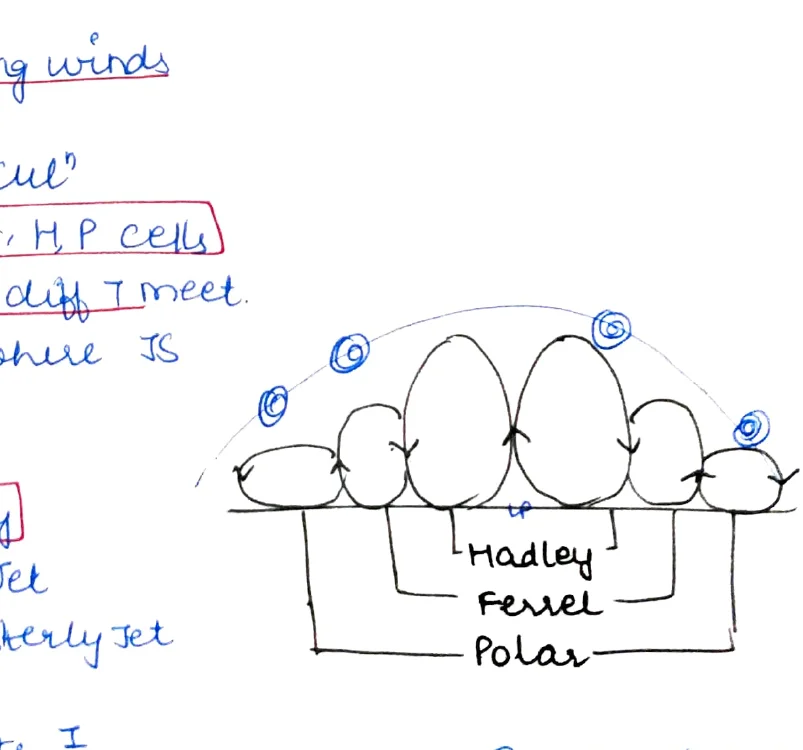 ng winds
culⁿ
, H, P cells
diff T meet.
phere JS
LP
Hadley
Jet
Ferrel
terly Jet
Polar
I